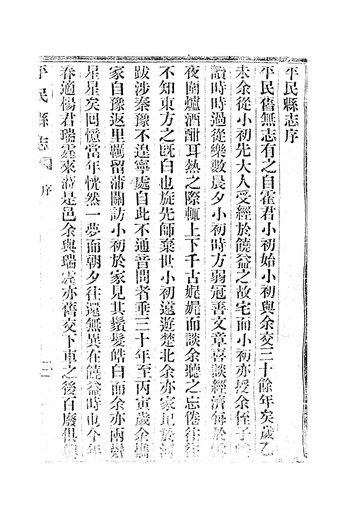 平民縣志序
平民舊無志有之自霍君小初始小初與余交三十餘年矣歲乙
未余從小初先大人受經於饒益之故宅而小初亦授余侄子
讀時時過從樂數晨夕小初時方弱冠善文章喜談經濟每於
夜圍爐酒酣耳熱之際輒上下千古娓娓而談余聽之忘倦往往
不知東方之既白也旋先師棄世小初遠遊楚北余亦家
跋涉秦豫不遑寧處自此不通音問者垂三十年至丙寅歲余攜
家自豫返里羈留蒲關訪小初於家見其鬚髮皓白而余亦兩鬢
星星矣回憶當年恍然一夢而朝夕往還無異在饒益時也今年
春適楊君瑞霆來蒞是邑余與瑞霆亦舊交下車之後百廢俱
平民縣志
序
二